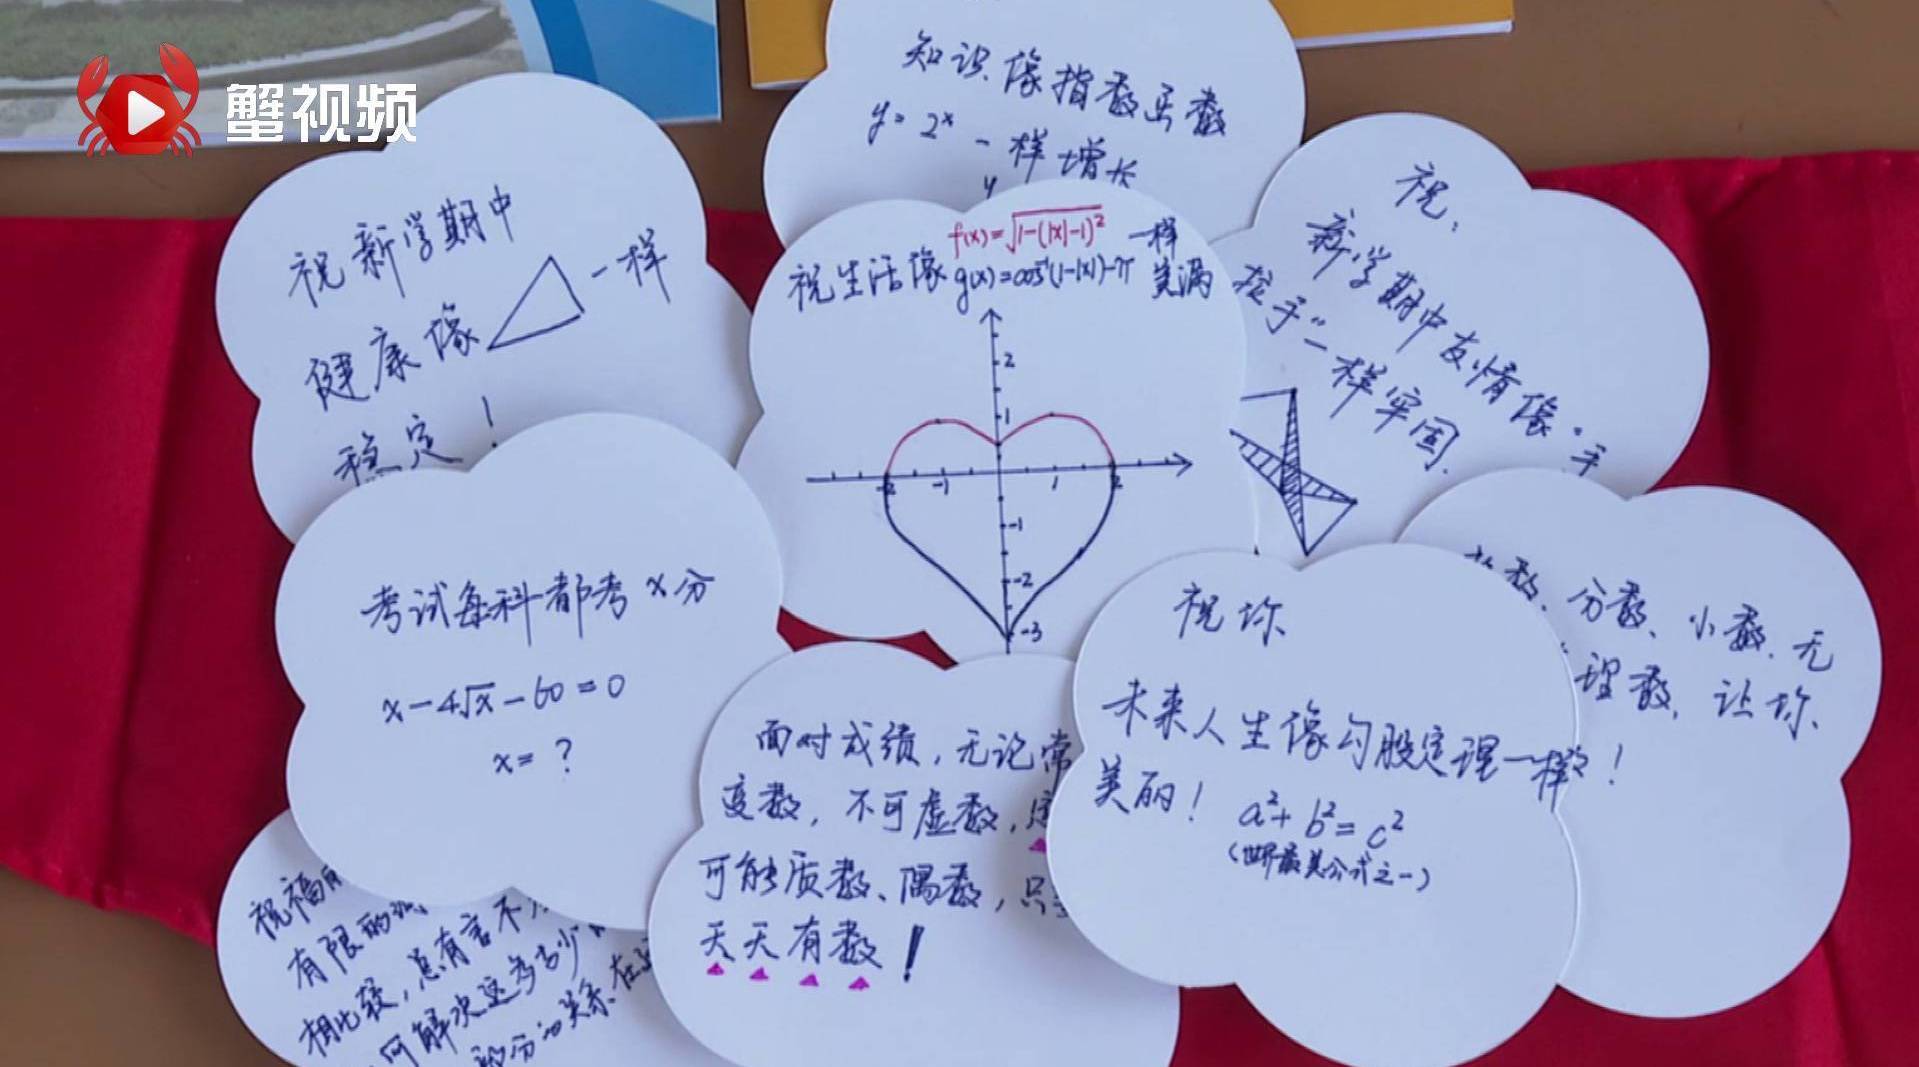 蟹视频
知识像指数函数
y=2ˣ一样增长
祝新学期中
健康像 一样
稳定！
祝生活像
f(x)=√1-(|x|-1)²
g(x)=cos⁻¹(1-|x|)-π
一样
美满
y
2
1
-2
-1
1
2
-1
-2
-3
祝：
新学期中友情像"手
拉手"一样牢固.
考试每科都考x分
x-4√x-60=0
x=？
分数、小数、无
理数，让你、
祝你
未来人生像勾股定理一样
美丽！
！
a²+b²=c²
(世界最美公式之一)
面对成绩，无论常
变数，不可虚数，
可能质数、偶数，只
天天有数！
祝福
有限的
相比较，总有言不
何解决这多与少
部分的关系.在